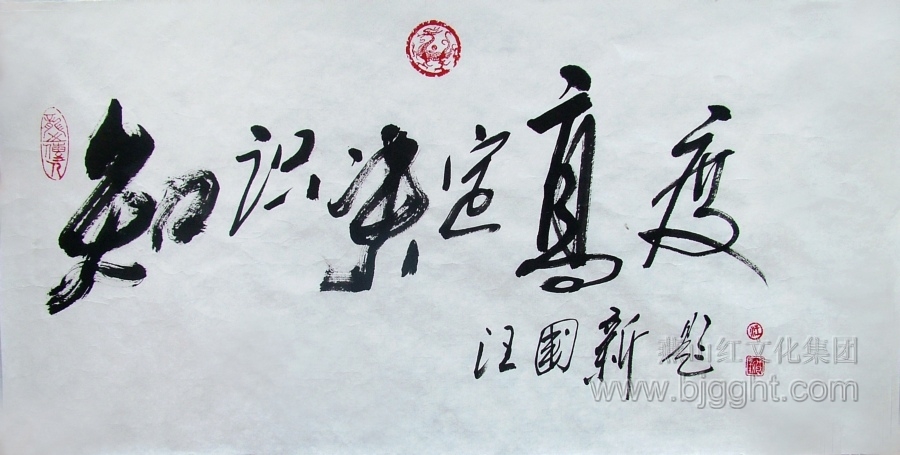 知识决定高度
汪国新题
燕山红文化集团
www.bjgght.com